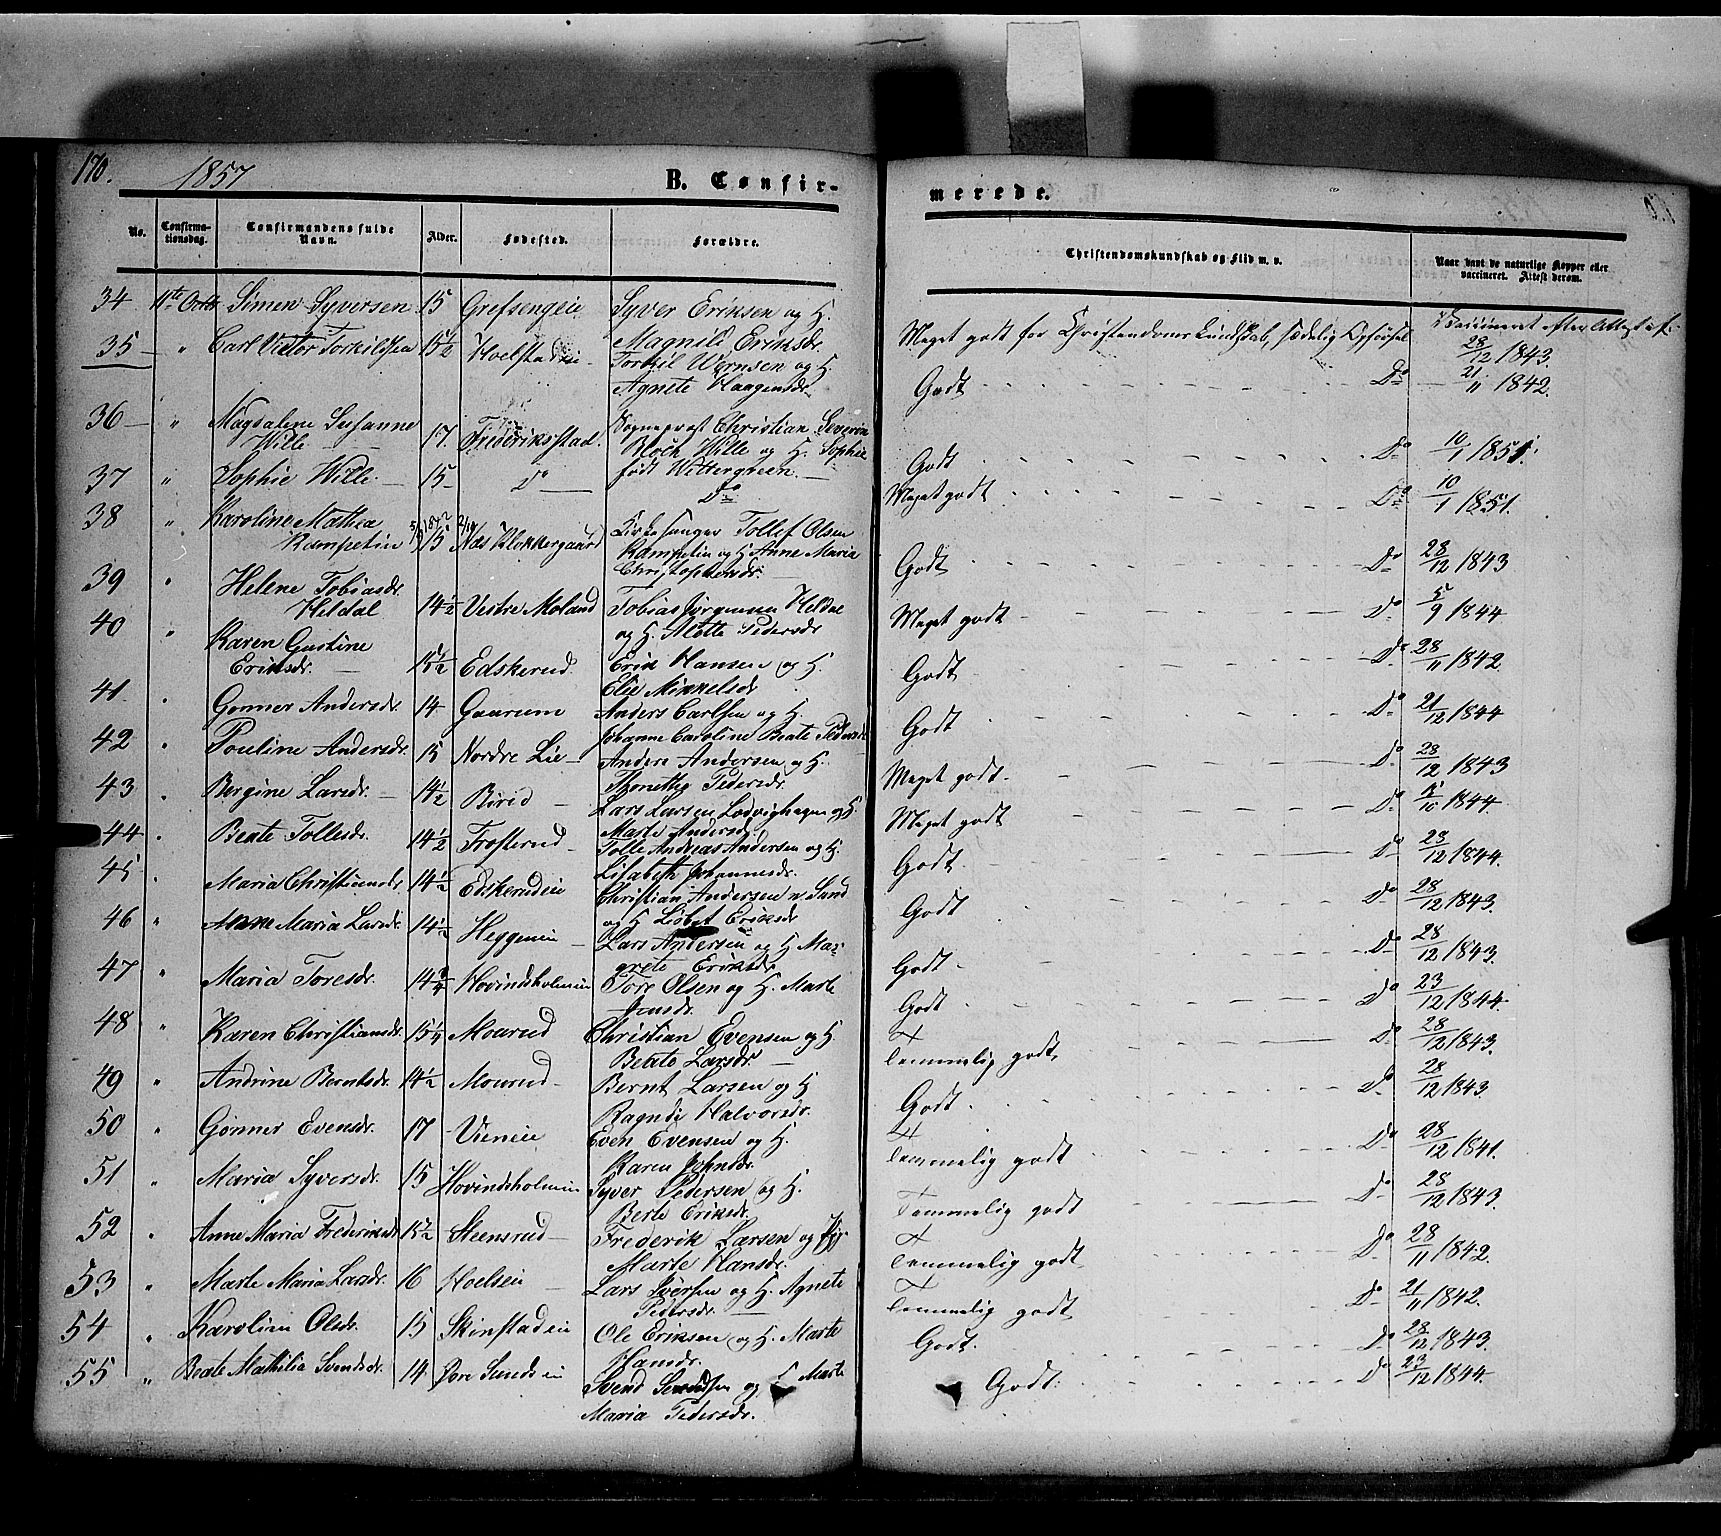 170.
1857
B. Confir-
merede.
No.
Confirma-
tionsdag.
Confirmandens fulde
Navn.
Alder.
Fødested.
Forældre.
Christendomskundskab og Flid m. v.
Naar havt de naturlige Kopper eller
vaccineret. Attest derom.
34 11te Octbr Simen Syversen 15 Grefsengeie Syver Eriksen og H.
Magnild Eriksdr. Meget godt for Christendoms Kundskab, sædelig Opførsel Vaccineret efter Attest af
28/12 1843.
35 " Carl Victor Torkilsen 15 1/2 Hoelstadeie Torkil Wernsen og H.
Agnete Haagensdr. Godt Do 21/11 1842.
36 " Magdalene Susanne
Wille 17 Frederiksstad. Sogneprest Christian Severin
Bloch Wille og H. Sophie
født Wittergreen. Godt Do 10/1 1851.
37 " Sophie Wille 15 Do Do Meget godt Do 10/1 1851.
38 " Karoline Mathea
Rampetin 15 Næs Klokkergaard Kirkesanger Tollef Olsen
Rampetin og H Anne Maria
Christophersdr. Godt Do 28/12 1843
39 " Helene Tobiasdr.
Heldal 14 1/2 Vestre Moland Tobias Jørgensen Heldal
og H. Mette Pedersdr Meget godt Do 5/9 1844
40 " Karen Gustine
Eriksdr. 15 1/2 Edskerud Erik Hansen og H.
Elie Mikkelsdr Godt Do 28/11 1842
41 " Gonner Andersdr. 14 Gaarum Anders Carlsen og H
Johanne Caroline Beate Pedersdr Godt Do 21/12 1844
42 " Pouline Andersdr. 15 Nordre Lie Anders Andersen og H.
Pedersdr. Meget godt Do 28/12 1843
43 " Bergine Larsdr. 14 1/2 Birid Lars Larsen Lodvighagen og H.
Marte Andersdr Meget godt Do 1844.
44 " Beate Tollesdr. 14 1/2 Frosterud Tolle Andreas Andersen og H.
Lisabeth Johannesdr. Godt Do 23/12 1844.
45 " Maria Christiansdr. 14 1/2 Edskerudeie Christian Andersen n. Sund
og H Lisbet Eriksdr Godt Do 28/12 1843.
46 " Anne Maria Larsdr. 14 1/2 Heggeneie Lars Andersen og H Mar-
grete Eriksdr. Godt Do 28/12 1843.
47 " Maria Toresdr. 14 3/4 Hovindsholmeie Tore Olsen og H. Marte
Jensdr. Godt Do 23/12 1844.
48 " Karen Christiansdr. 15 1/4 Moarud Christian Evensen og H.
Beate Larsdr. Temmelig godt Do 28/12 1843.
49 " Andrine Berntsdr. 14 1/2 Mourud Bernt Larsen og H
Ragndi Halvorsdr. Godt Do 28/12 1843.
50 " Gonner Evensdr. 17 Vieneie Even Evensen og H.
Karen Johnsdr. Temmelig godt Do 28/12 1841.
51 " Maria Syversdr. 15 Hovindsholmeie Syver Pedersen og H.
Berte Eriksdr. Temmelig godt Do 28/12 1843.
52 " Anne Maria Frederiksdr 15 1/2 Steensrud Frederik Larsen og
Marte Hansdr. Temmelig godt Do 28/11 1842.
53 " Marte Maria Larsdr. 16 Hoelseie Lars Iversen og H. Agnete
Pedersdr. Temmelig godt Do 21/11 1842.
54 " Karoline Olsdr. 15 Skinstadeie Ole Eriksen og H. Marte
Hansdr. Godt. Do 28/12 1843.
55 " Beate Mathilia Svendsdr. 14 Øvre Sundseie Svend Svendsen og H Marte
Maria Pedersdr. Godt. Do 23/12 1844.